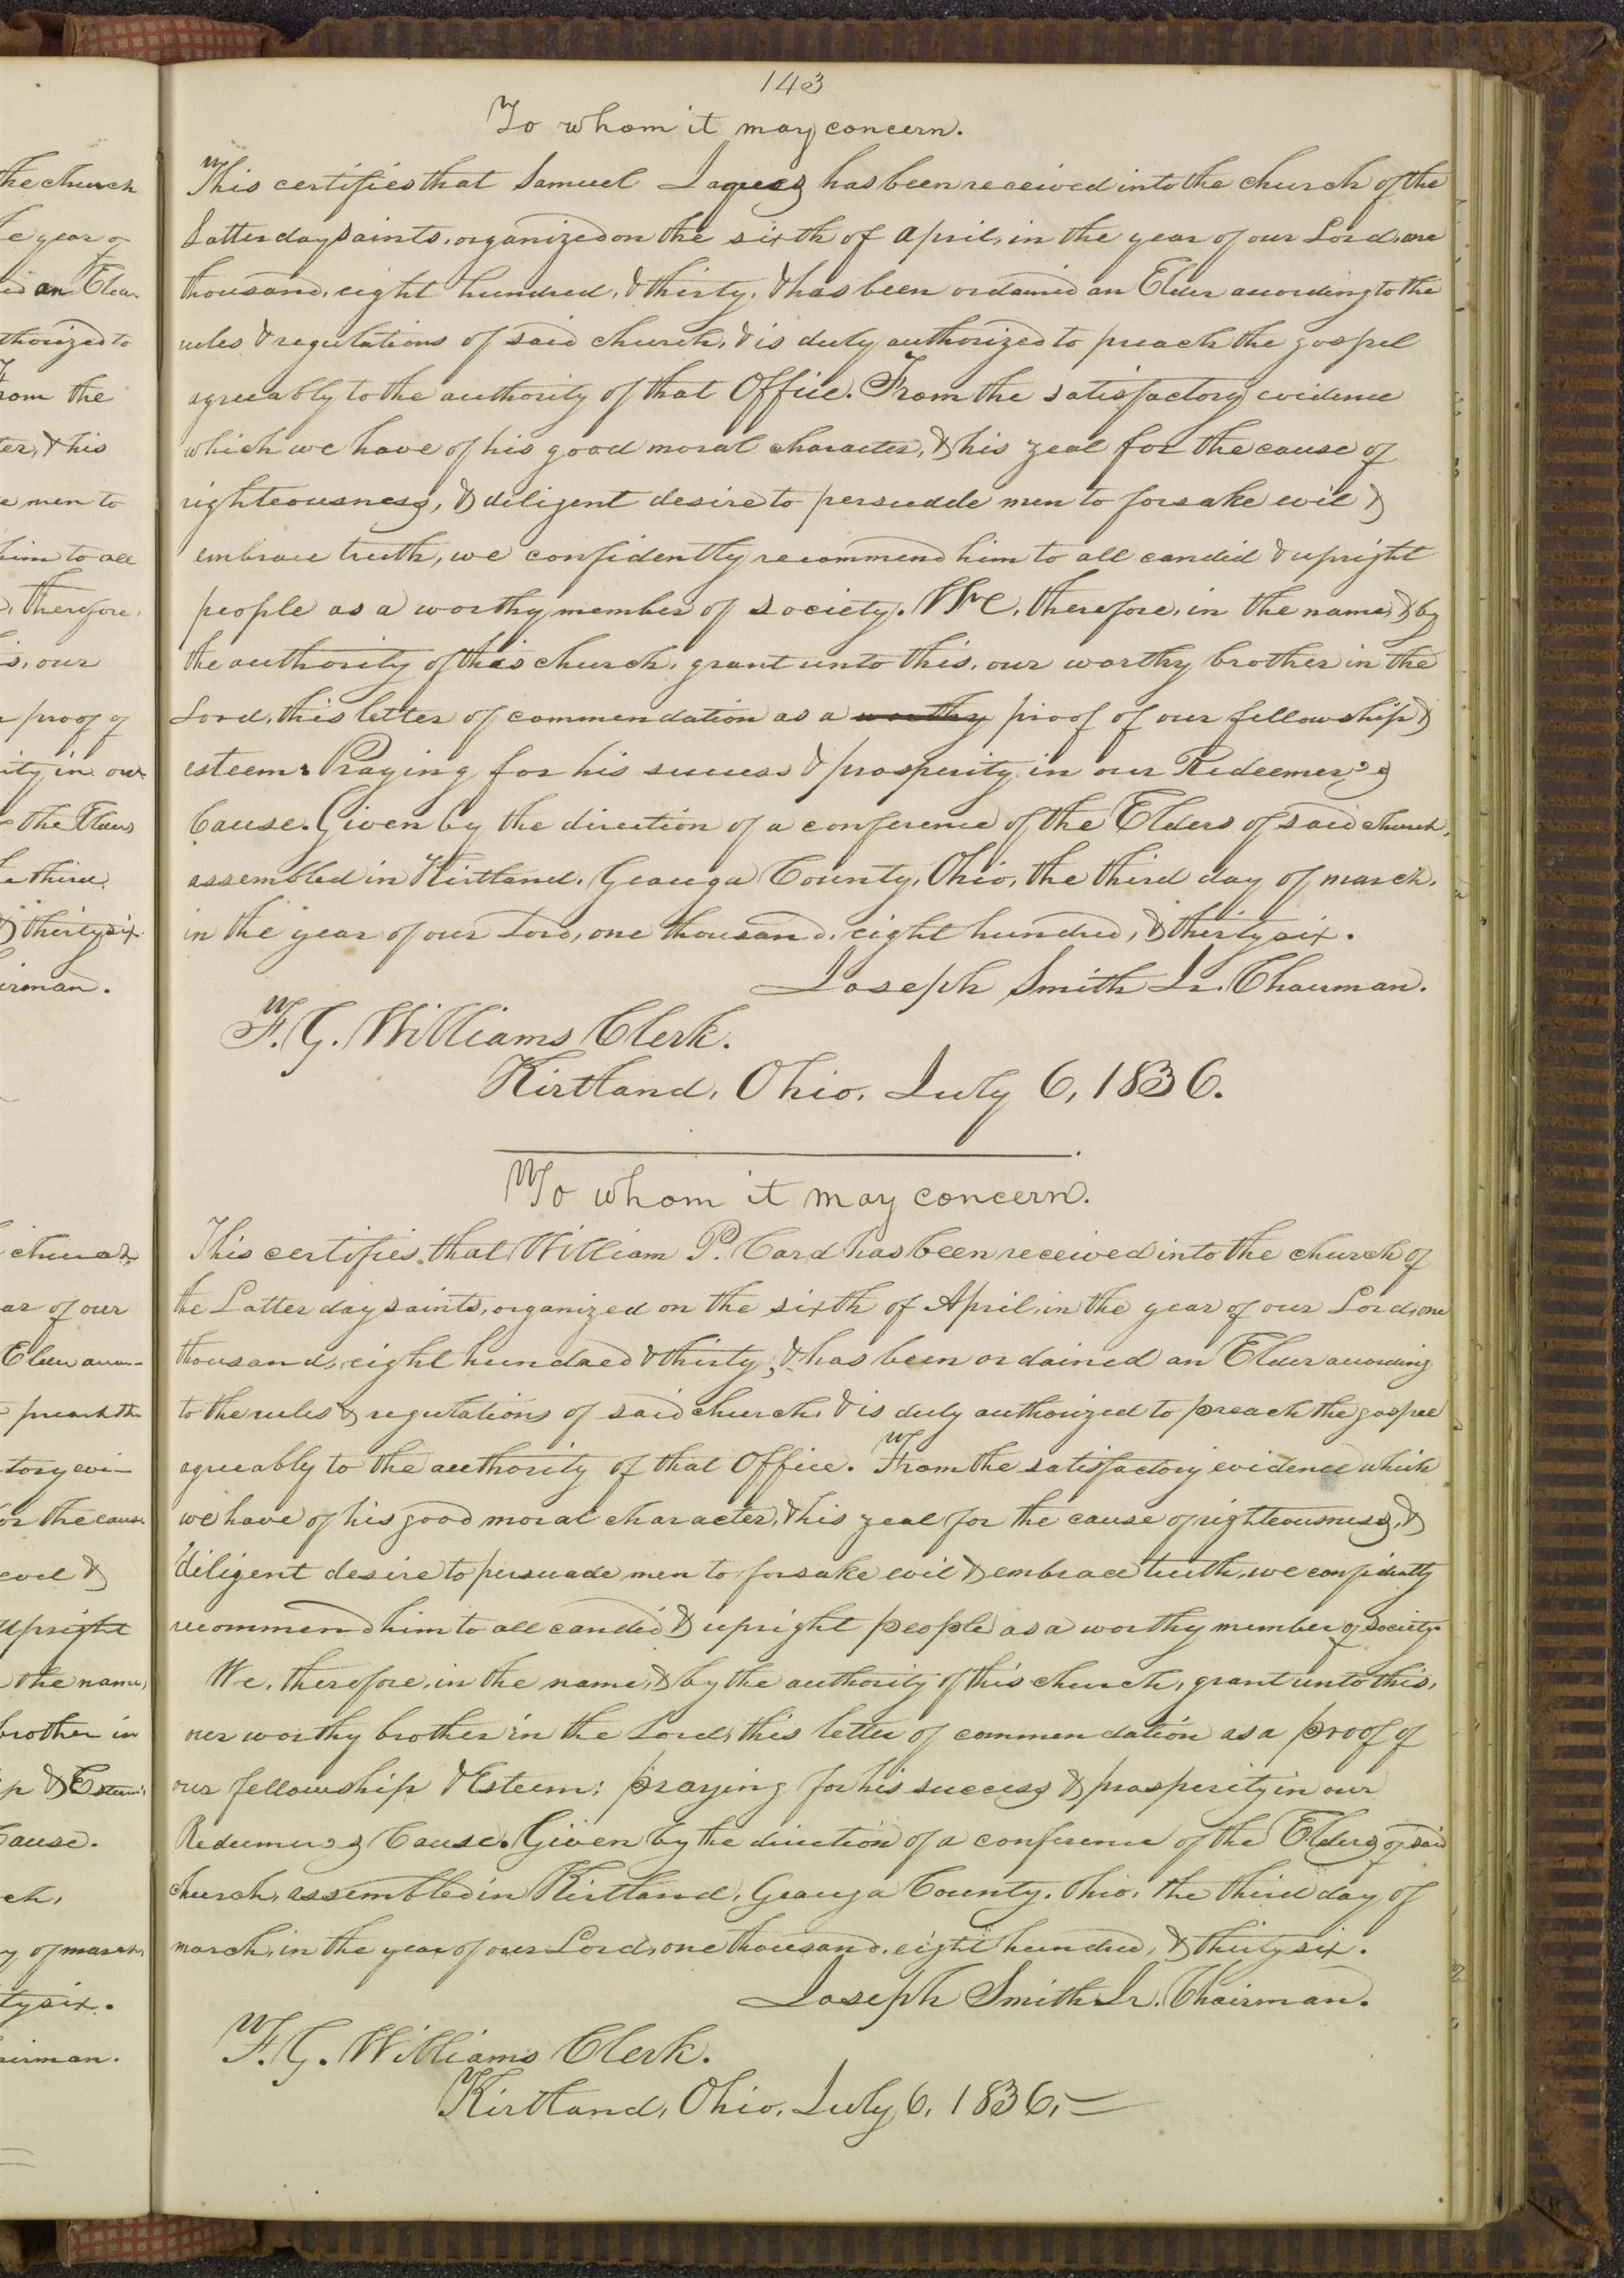 143
To whom it may concern.
This certifies that Samuel Jaques has been received into the church of the
Latter day saints, organized on the sixth of April, in the year of our Lord, one
thousand, eight hundred, & thirty, & has been ordained an Elder according to the
rules & regulations of said church, & is duly authorized to preach the gospel
agreeably to the authority of that Office. From the satisfactory evidence
which we have of his good moral character, & his zeal for the cause of
righteousness, & diligent desire to persuade men to forsake evil &
embrace truth, we confidently recommend him to all candid & upright
people as a worthy member of society. We, therefore, in the name, & by
the authority of this church, grant unto this, our worthy brother in the
Lord, this letter of commendation as a worthy proof of our fellowship &
esteem: Praying for his success & prosperity in our Redeemer's
Cause. Given by the direction of a conference of the Elders of said church,
assembled in Kirtland, Geauga County, Ohio, the third day of march,
in the year of our Lord, one thousand, eight hundred, & thirty six.
Joseph Smith Jr. Chairman.
F. G. Williams Clerk.
Kirtland, Ohio, July 6, 1836.
To whom it may concern.
This certifies that William P. Card has been received into the church of
the Latter day saints, organized on the sixth of April, in the year of our Lord, one
thousand, eight hundred & thirty, & has been ordained an Elder according
to the rules & regulations of said church, & is duly authorized to preach the gospel
agreeably to the authority of that Office. From the satisfactory evidence which
we have of his good moral character, & his zeal for the cause of righteousness, &
diligent desire to persuade men to forsake evil & embrace truth, we confidently
recommend him to all candid & upright people as a worthy member of society.
We, therefore, in the name, & by the authority of this church, grant unto this,
our worthy brother in the Lord, this letter of commendation as a proof of
our fellowship & Esteem: praying for his success & prosperity in our
Redeemer's Cause. Given by the direction of a conference of the Elders of said
church, assembled in Kirtland, Geauga County, Ohio, the third day of
march, in the year of our Lord, one thousand, eight hundred, & thirty six.
Joseph Smith Jr. Chairman.
F. G. Williams Clerk.
Kirtland, Ohio, July 6, 1836.